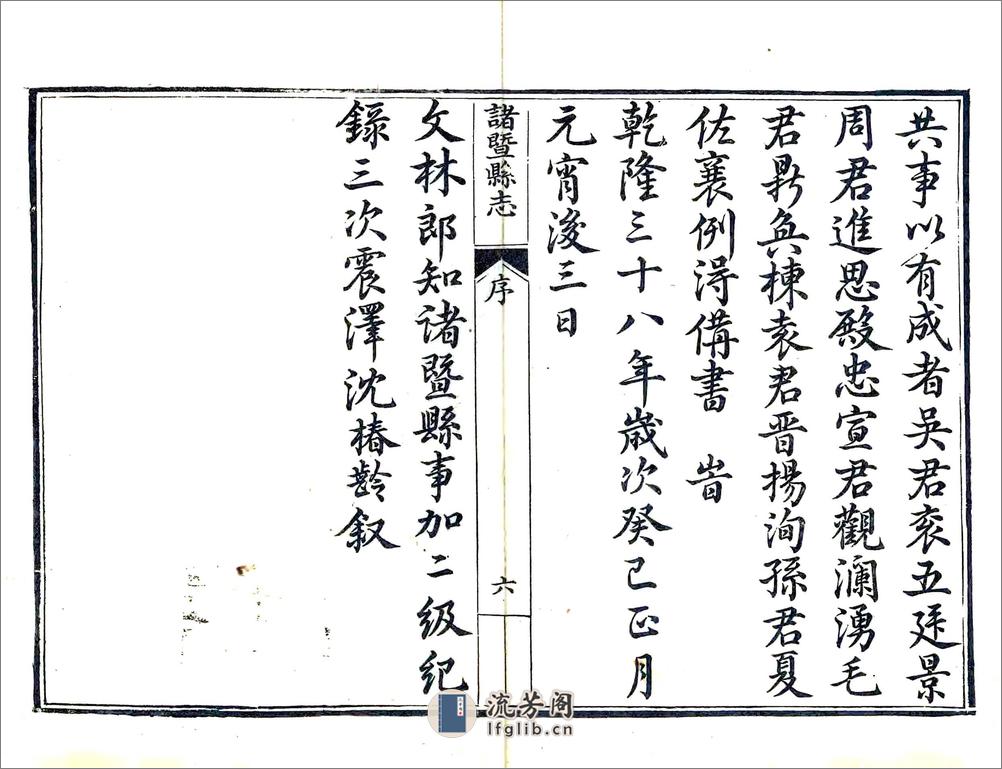 共事以有成者吳君衮五廷景
周君進思殿忠宣君觀瀾湧毛
君鼎奐棟袁君晋揚洵孫君夏
佐襄例得備書 旹
乾隆三十八年歲次癸巳正月
元宵後三日
諸暨縣志 序 六
文林郎知诸暨縣事加二级纪
錄三次震澤沈椿齡叙
流芳阁
lfglib.cn